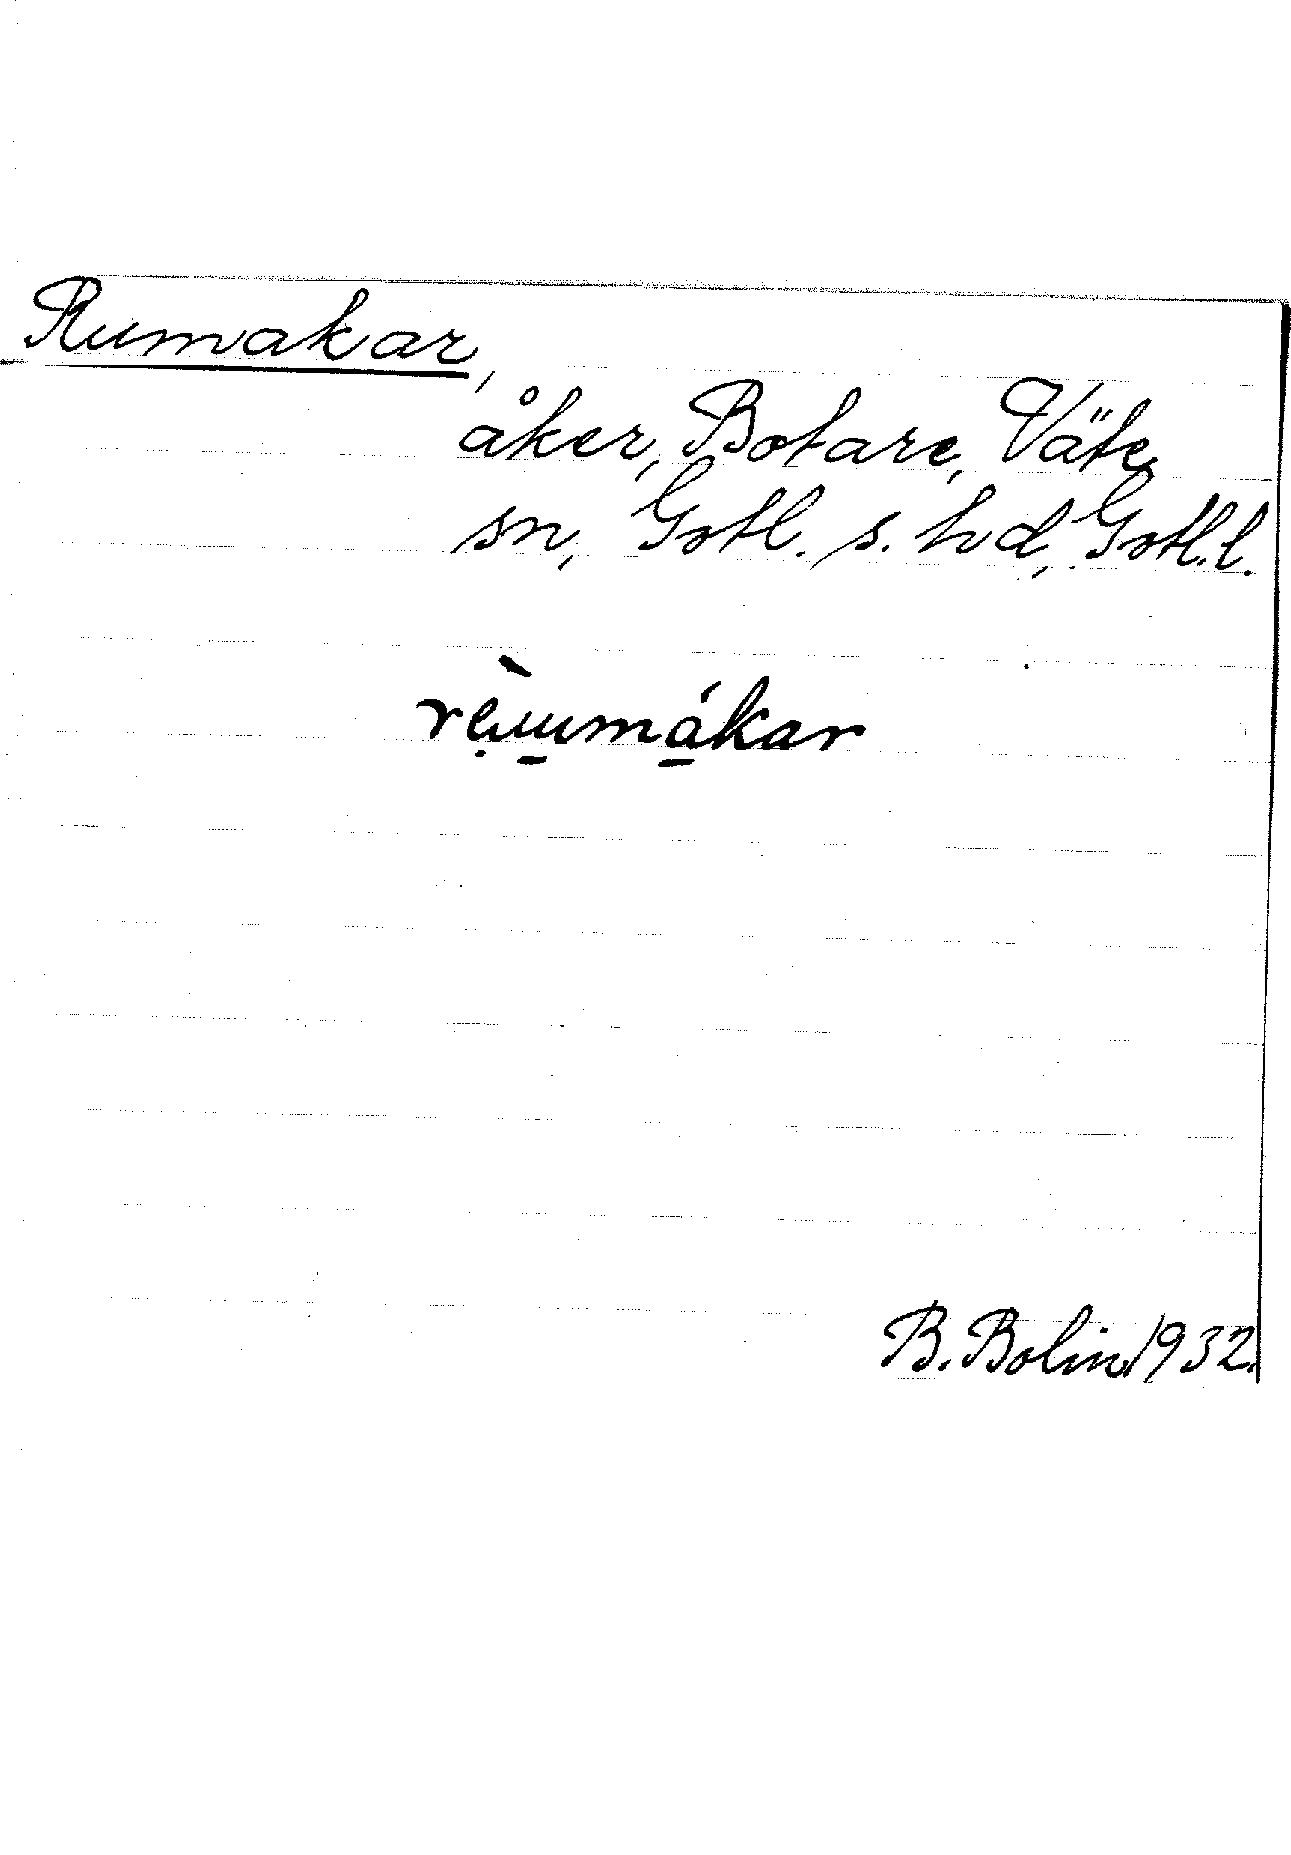 Rumakar,
åker, Botare, Väte
sn, Gotl. s. hd, Gotl. l.
rèu̱umá̱kar
B. Bolin 1932.